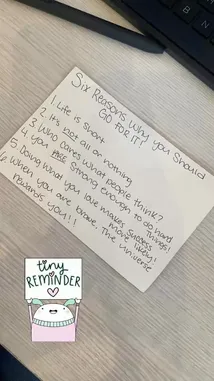 Six Reasons Why you Should
GO FOR IT?
1. Life is Short
2. It's not all or nothing
3. Who cares what people think?
4 you ARE Strong enough to do hard
things!
5. Doing what you love makes success
more likely!
6 When you are brave, The universe
rewards you!!
tiny
REMINDER